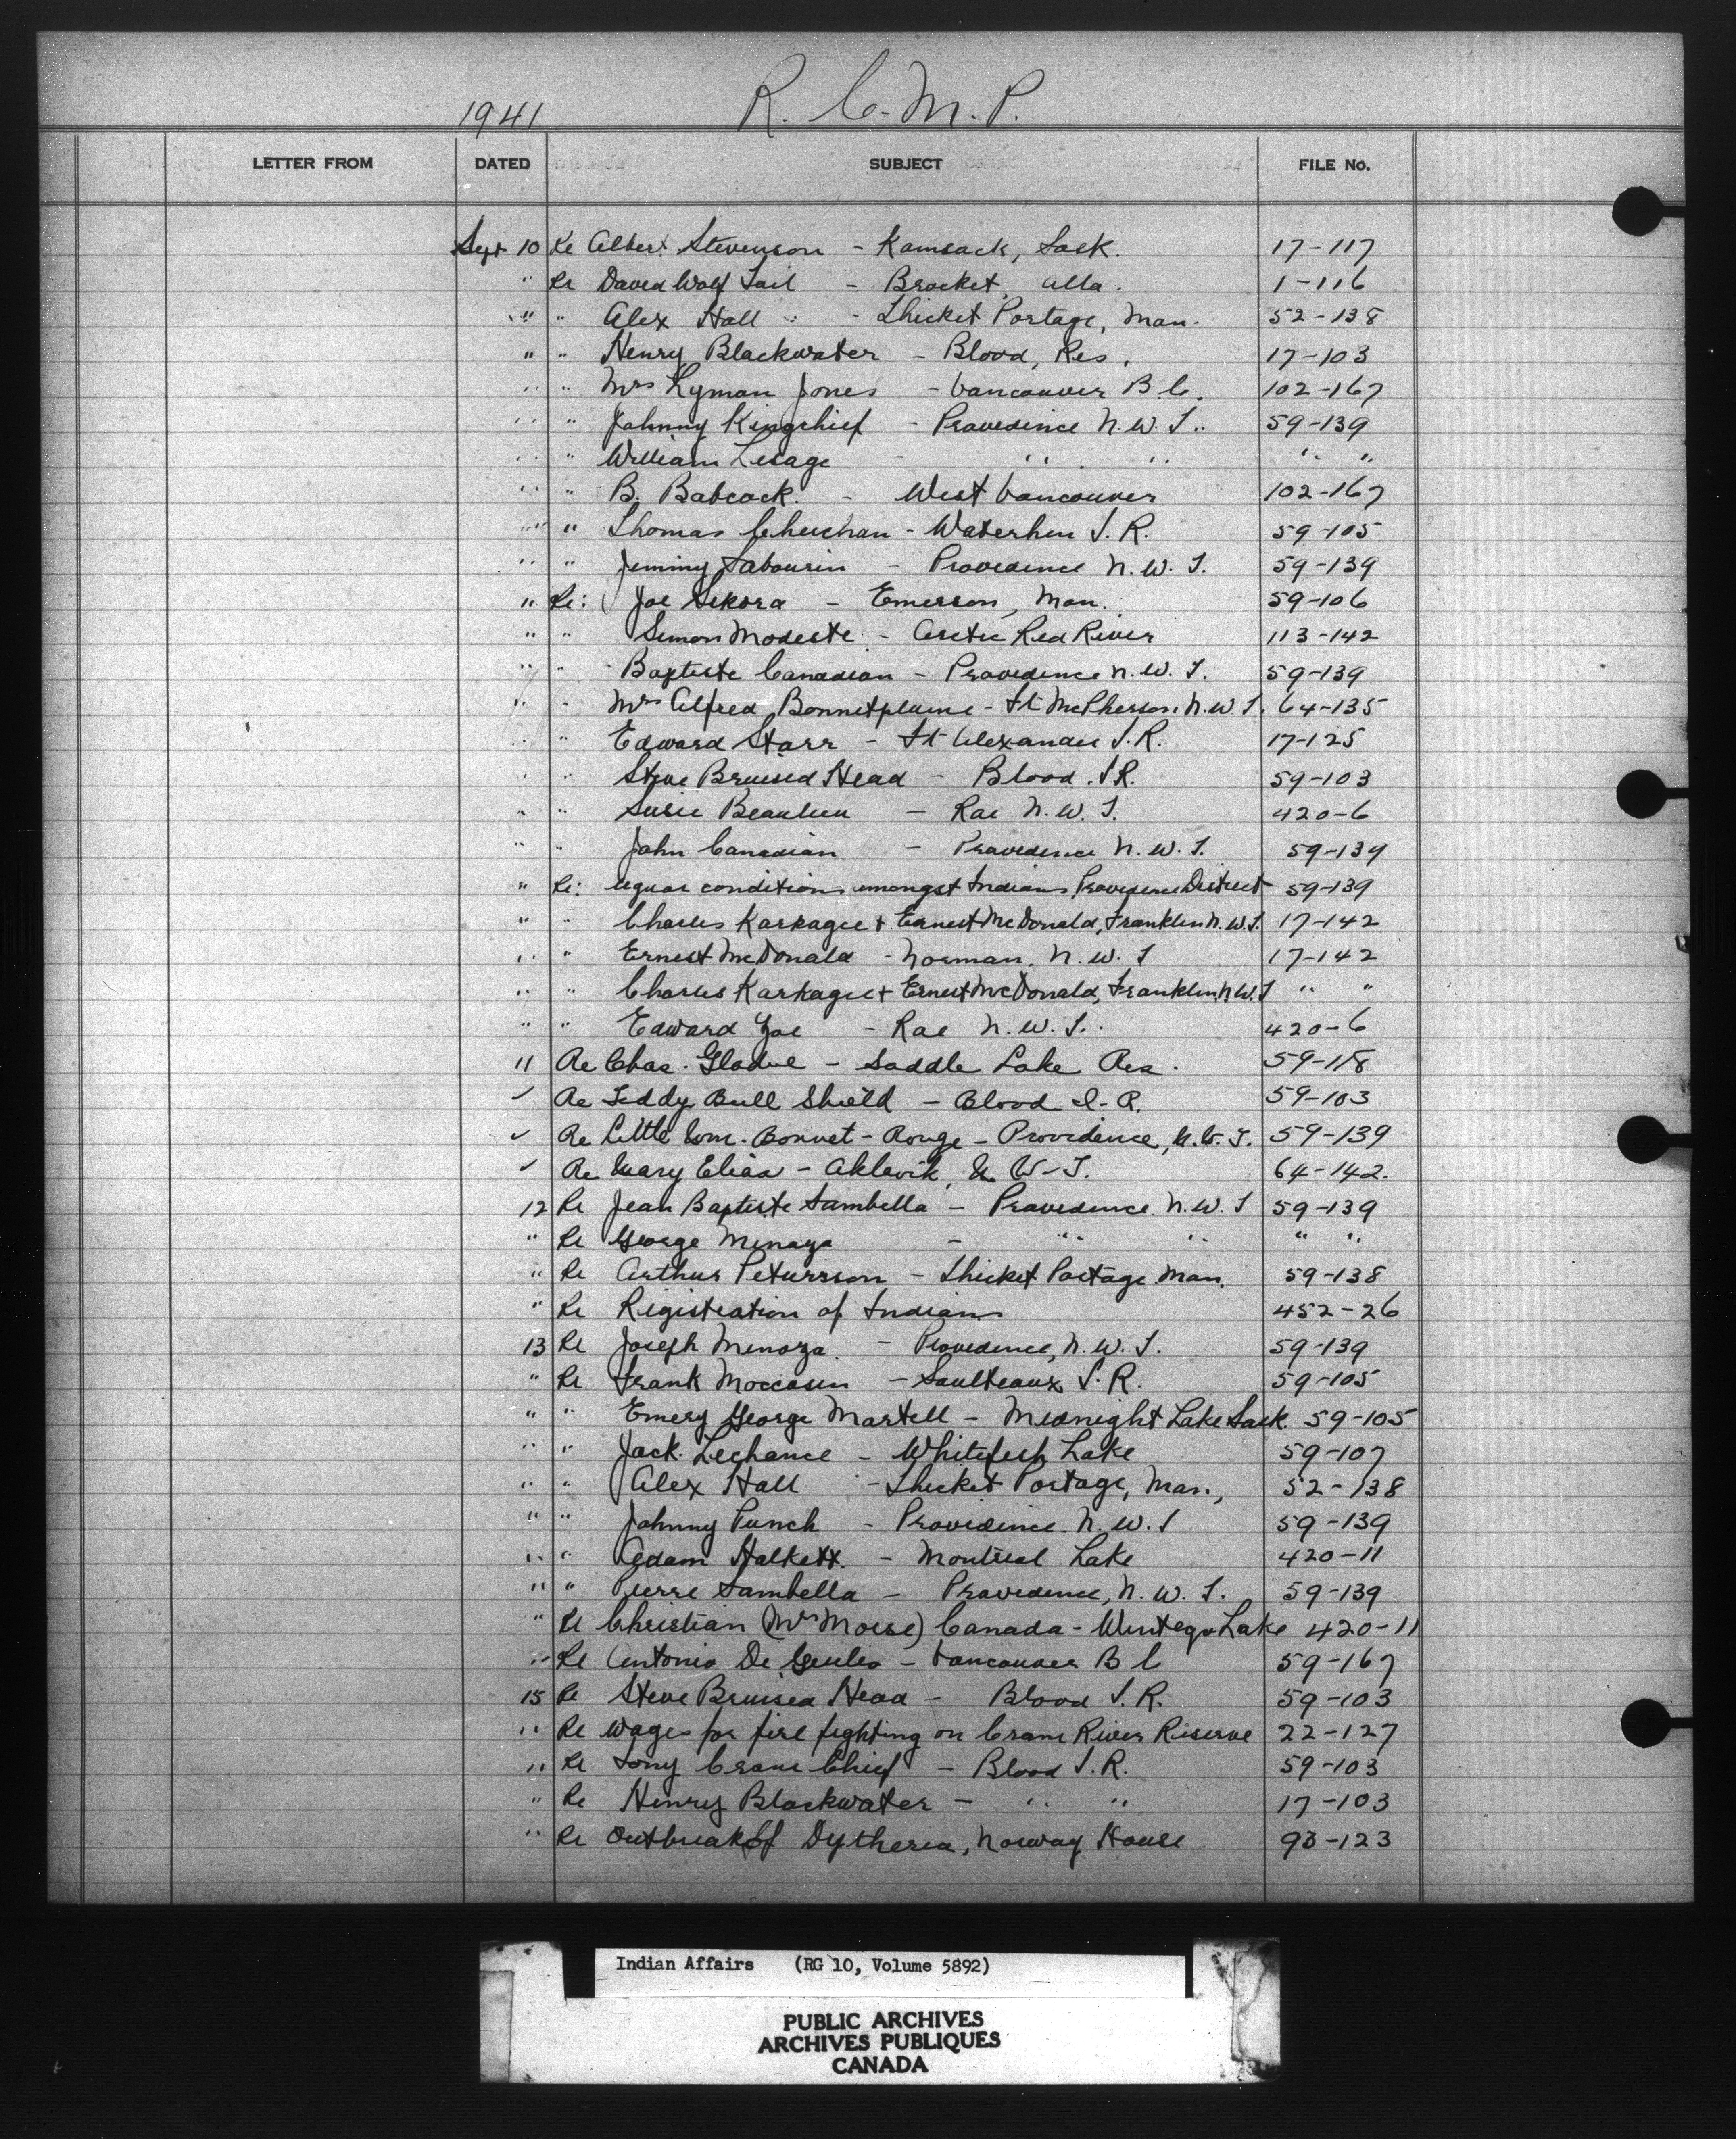 1941 R. C. M. P.
LETTER FROM DATED SUBJECT FILE No.
Sept 10 Re Albert Stevenson - Kamsack, Sask. 17-117
" Re David Wolf Tail - Brocket, Alta. 1-116
" " Alex Hall - Thicket Portage, Man. 52-138
" " Henry Blackwater - Blood, Res. 17-103
" " Mrs Lyman Jones - Vancouver B.C. 102-167
" " Johnny Kingchief - Providence N.W.T. 59-139
" " William Lesage - " " " "
" " B. Babcock. - West Vancouver 102-167
" " Thomas - Waterhen I.R. 59-105
" " Jimmy Sabourin - Providence N.W.T. 59-139
" Re: Joe Sekora - Emerson, Man. 59-106
" " Simon Modeste - Arctic Red River 113-142
" " Baptiste Canadian - Providence N.W.T. 59-139
" " Mrs Alfred Bonnetplume - Ft McPherson N.W.T. 64-135
" " Edward Starr - Ft Alexander I.R. 17-125
" " Steve Bruised Head - Blood I.R. 59-103
" " Susie Beaulieu - Rae N.W.T. 420-6
" " John Canadian - Providence N.W.T. 59-139
" Re: liquor conditions amongst Indians Providence District 59-139
" " Charles Karkagie + Ernest McDonald, Franklin N.W.T. 17-142
" " Ernest McDonald - Norman, N.W.T 17-142
" " Charles Karkagie + Ernest McDonald, Franklin, N.W.T " "
" " Edward Zoe - Rae N.W.T. 420-6
11 Re Chas. Gladue - Saddle Lake Res. 59-118
✓ Re Teddy Bull Shield - Blood I.R. 59-103
✓ Re Little Wm. Bonnet-Rouge - Providence, N.W.T. 59-139
✓ Re Mary Elias - Aklavik, N.W.T. 64-142.
12 Re Jean Baptiste Sambella - Providence N.W.T 59-139
" Re George Minaya - " " " "
" Re Arthur Petursson - Thicket Portage Man. 59-138
" Re Registration of Indians 452-26
13 Re Joseph Minoza. - Providence, N.W.T. 59-139
" Re Frank Moccasin - Saulteaux I.R. 59-105
" " Emery George Martell - Midnight Lake Sask. 59-105
" " Jack Lechance - Whitefish Lake 59-107
" " Alex Hall - Thicket Portage, Man., 52-138
" " Johnny Punch - Providence N.W.T 59-139
" " Adam Halkett. - Montreal Lake 420-11
" " Pierre Sambella - Providence, N.W.T. 59-139
" Re Christian (Mrs Moise) Canada - Wintego Lake 420-11
" Re Antonio De Giulio - Vancouver B C 59-167
15 Re Steve Bruised Head - Blood I.R. 59-103
" Re Wages for fire fighting on Crane River Reserve 22-127
" Re Tony Crane Chief - Blood I.R. 59-103
" Re Henry Blackwater - " " 17-103
" Re Outbreak of Dytheria, Norway House 93-123
Indian Affairs (RG 10, Volume 5892)
PUBLIC ARCHIVES
ARCHIVES PUBLIQUES
CANADA